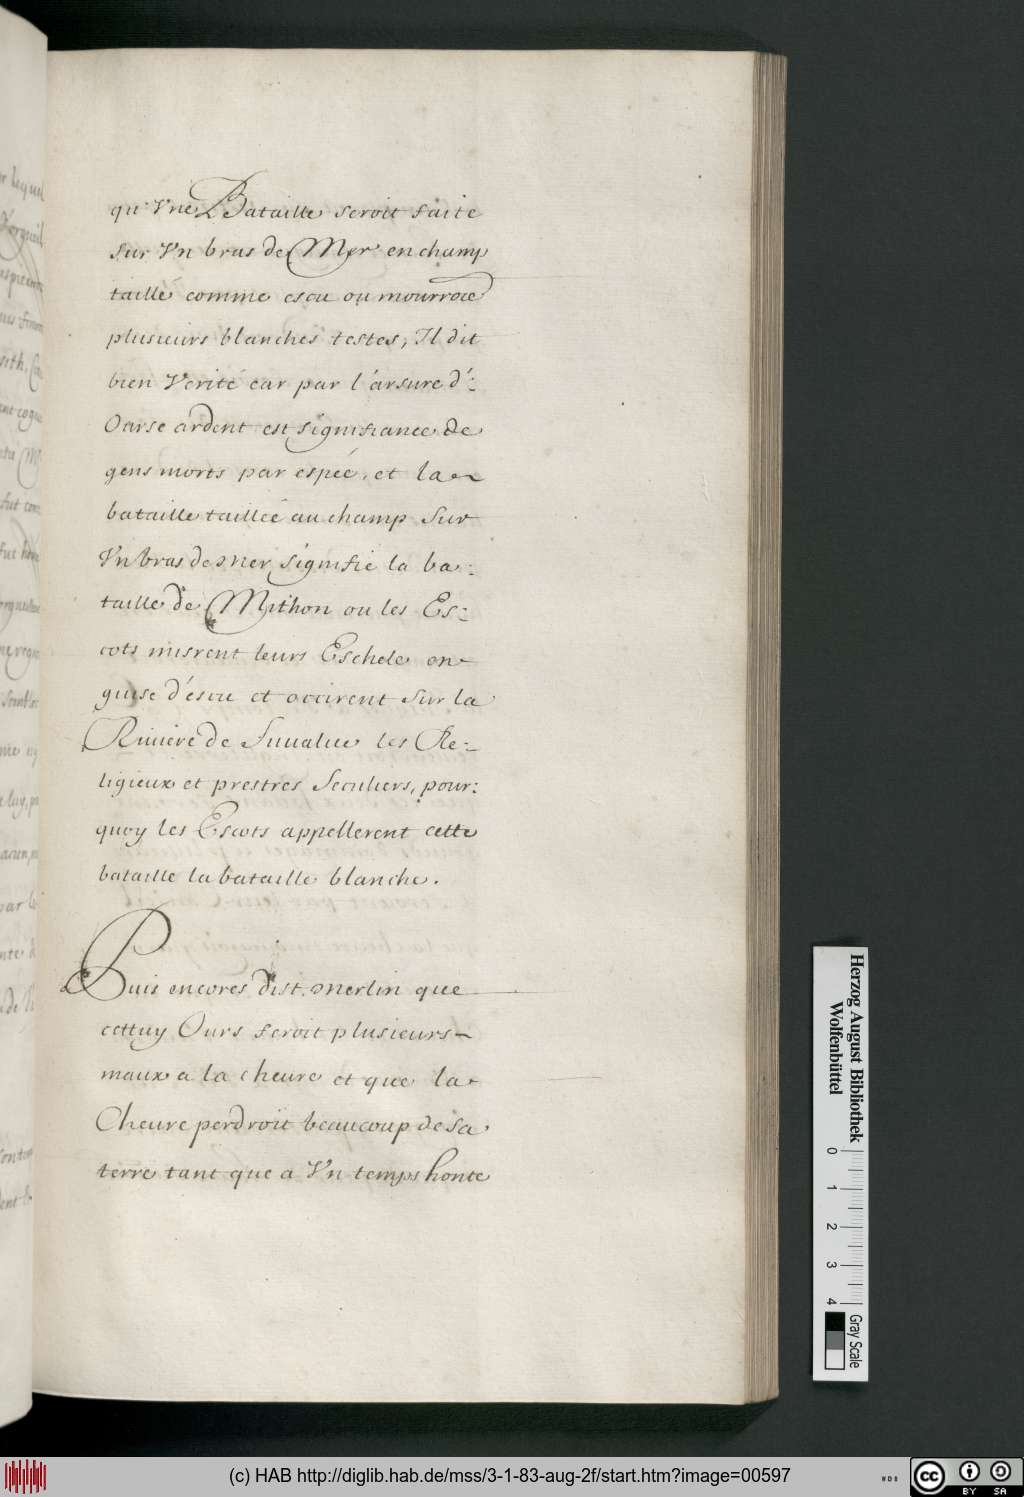 qu'Vne Bataille seroit faite
sur Vn bras de Mer en champ
taillé comme escu ou mourroie
plusieurs blanches testes, Il dit
bien Verité car par l'arsure d'-
Ourse ardent est signifiance de
gens morts par espée, et la
bataille taillée au champ sur
Vn bras de mer signifie la ba-
taille de Mithon ou les Es-
cots misrent leurs Eschele en
guise d'escu et occirent sur la
Riuiere de Suualue les Re-
ligieux et prestres Seculiers, pour-
quoy les Escots appellerent cette
bataille la bataille blanche.
Puis encores dist merlin que
cettuy Ours feroit plusieurs
maux a la cheure et que la
Cheure perdroit beaucoup de sa
terre tant que a Vn temps honte
Herzog August Bibliothek
Wolfenbüttel
0 1 2 3 4
Gray Scale
(c) HAB http://diglib.hab.de/mss/3-1-83-aug-2f/start.htm?image=00597
WDB
cc BY SA